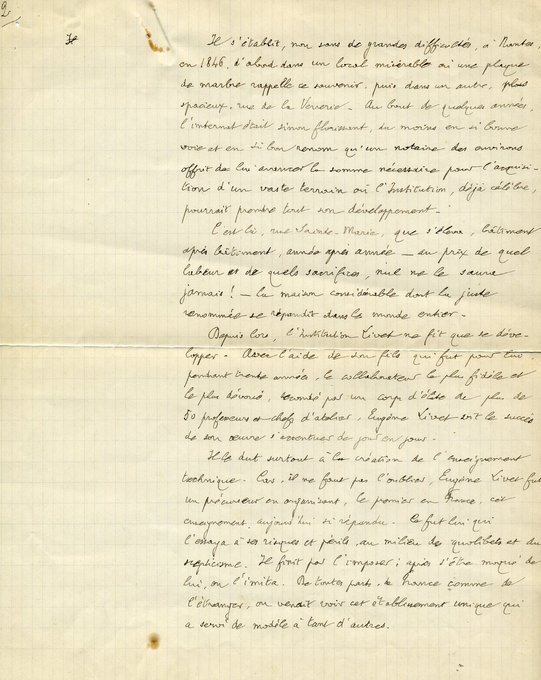 2
Il
Il s'établit, non sans de grandes difficultés, à Nantes,
en 1846, d'abord dans un local misérable où une plaque
de marbre rappelle ce souvenir, puis dans un autre, plus
spacieux, rue de la Verrerie - Au bout de quelques années,
l'internat était sinon florissant, du moins en si bonne
voie et en si bon renom qu'un notaire des environs
offrit de lui avancer la somme nécessaire pour l'acquisi-
tion d'un vaste terrain où l'Institution, déjà célèbre,
pourrait prendre tout son développement -
C'est là, rue Sainte-Marie, que s'éleva, bâtiment
après bâtiment, année après année - au prix de quel
labeur et de quels sacrifices, nul ne le saura
jamais ! - la maison considérable dont la juste
renommée se répandit dans le monde entier -
Depuis lors, l'institution Livet ne fit que se déve-
lopper - Avec l'aide de son fils qui fut pour lui,
pendant trente années, le collaborateur le plus fidèle et
le plus dévoué, secondé par un corps d'élite de plus de
50 professeurs et chefs d'atelier, Eugène Livet vit le succès
de son œuvre s'accentuer de jour en jour -
Il le dut surtout à la création de l'enseignement
technique - Car, il ne faut pas l'oublier, Eugène Livet fut
un précurseur en organisant, le premier en France, cet
enseignement, aujourd'hui si répandu - Ce fut lui qui
l'essaya à ses risques et périls, au milieu des quolibets et du
scepticisme - Il finit par l'imposer ; après s'être moqué de
lui, on l'imita. De toutes parts, de France comme de
l'étranger, on venait voir cet établissement unique qui
a servi de modèle à tant d'autres.